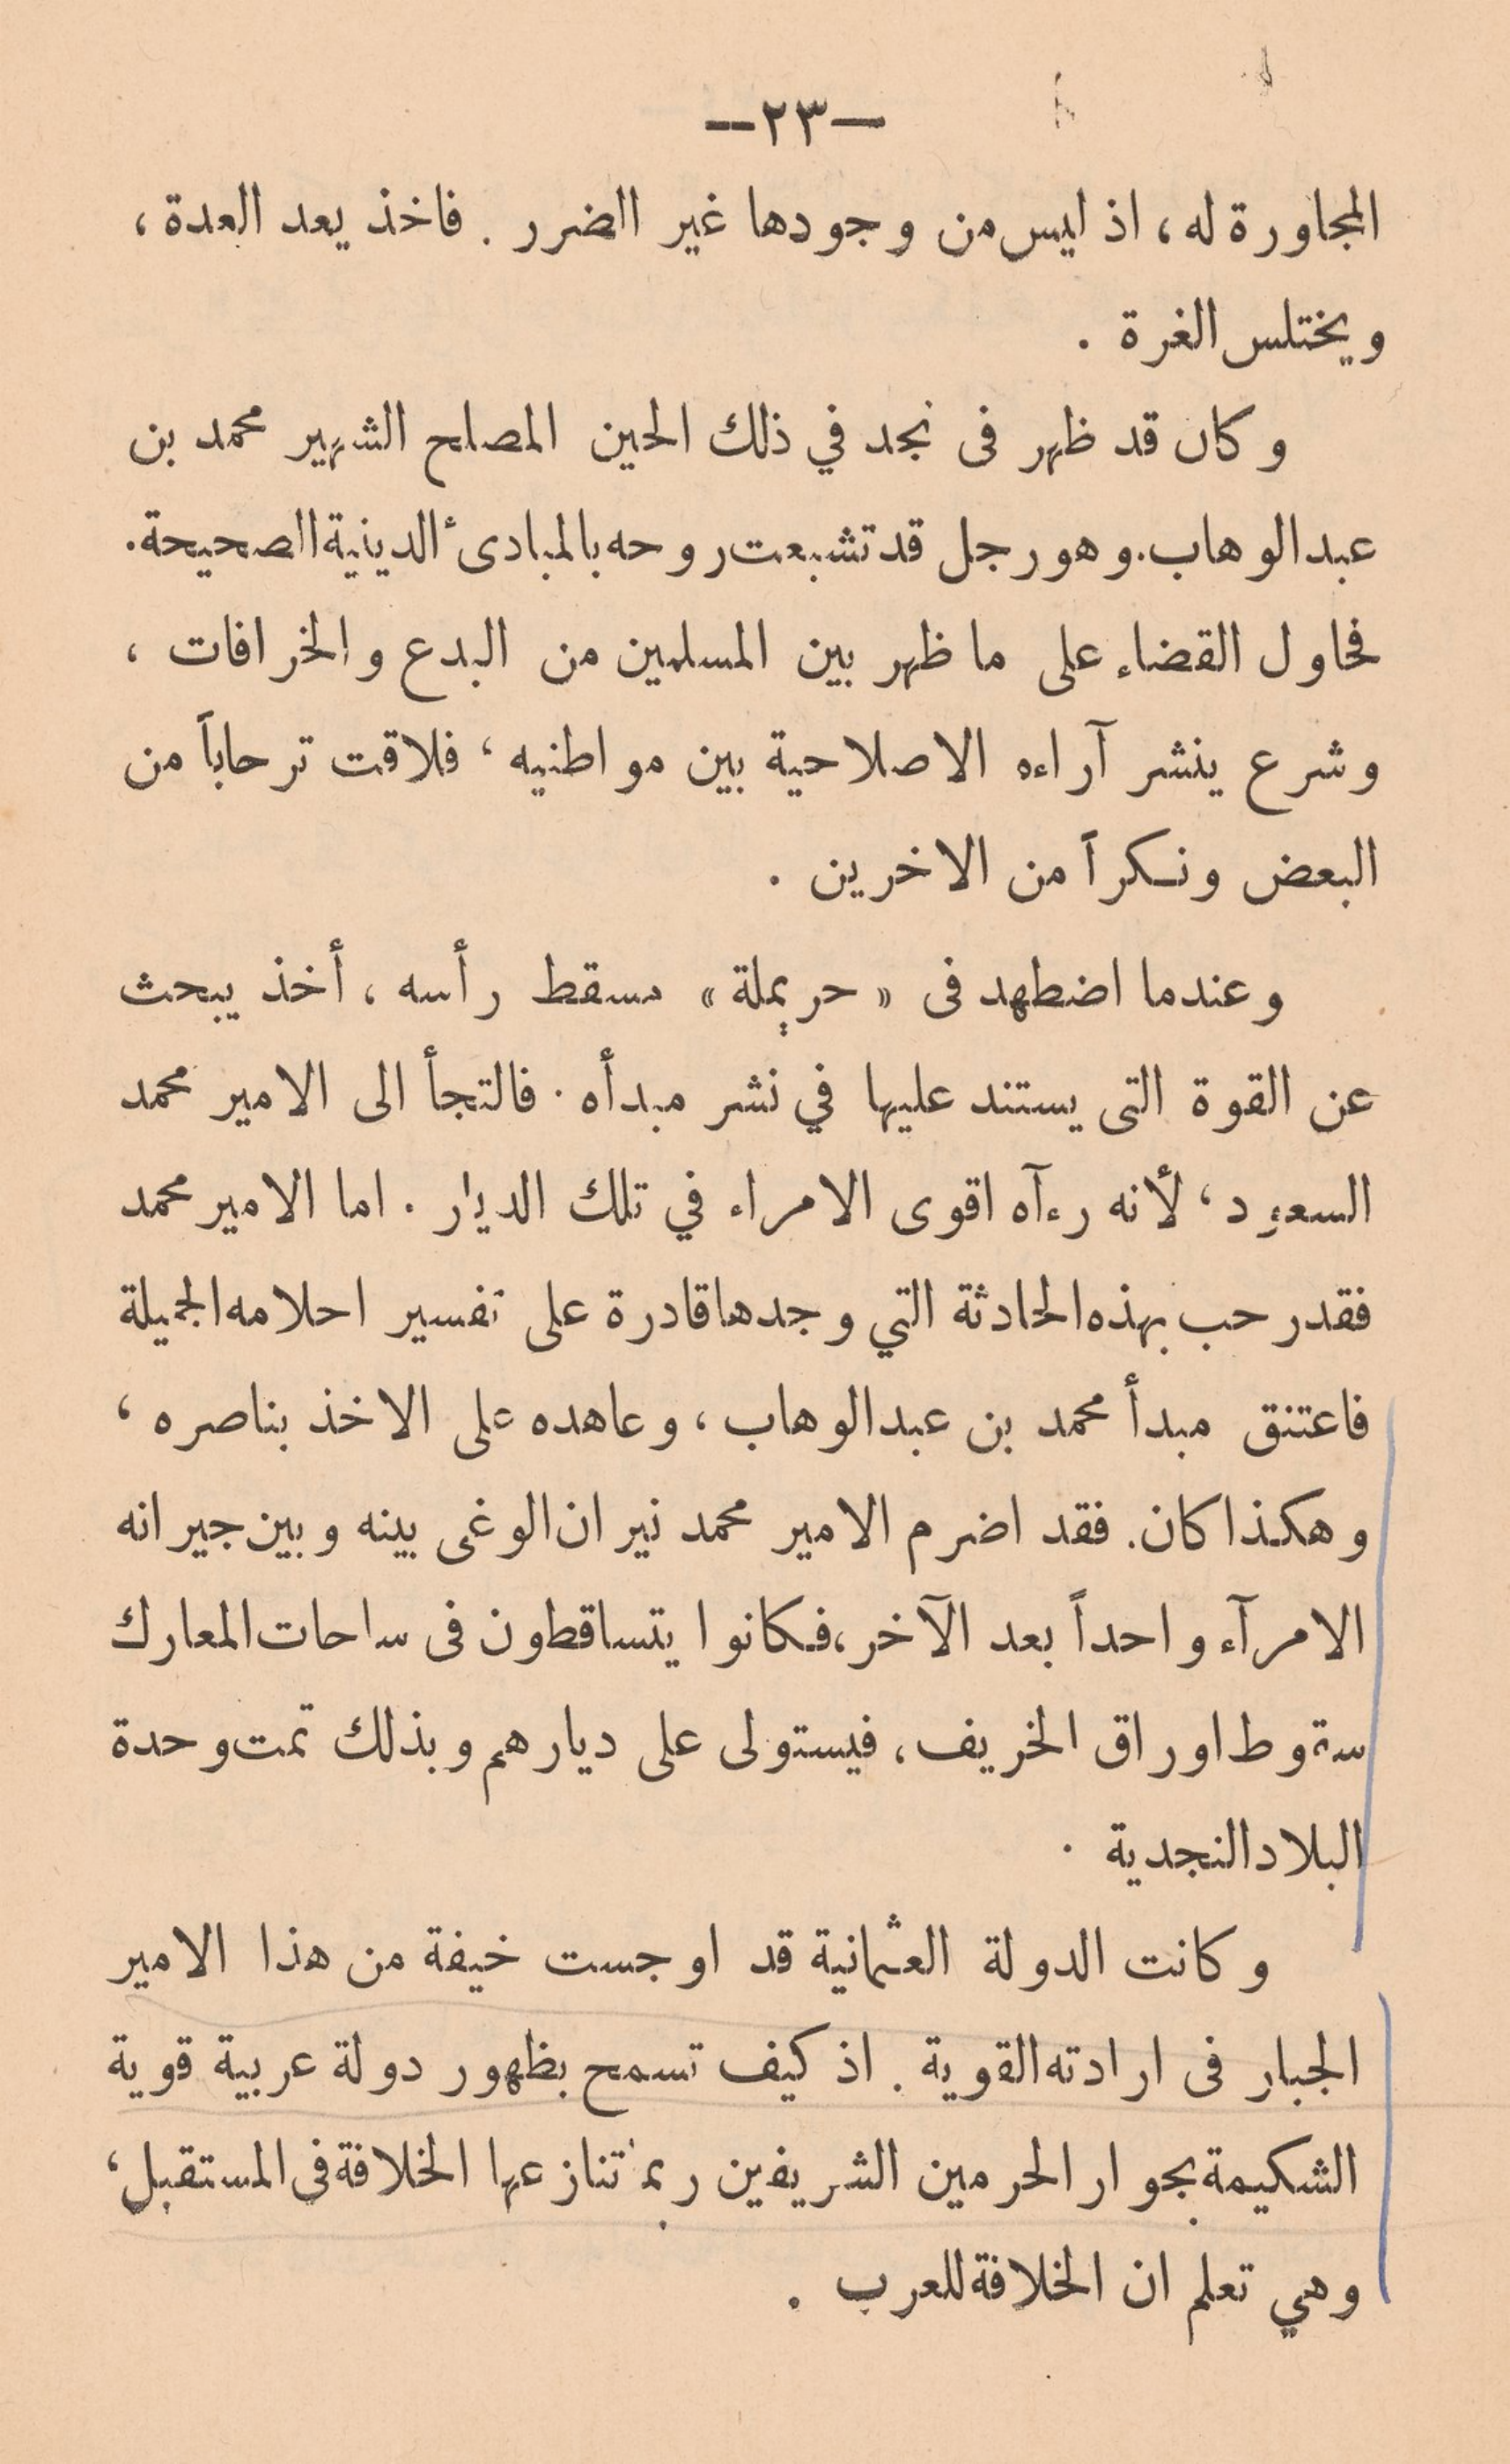 —٢٣—
المجاورة له، اذ ليس من وجودها غير الضرر . فاخذ يعد العدة،
ويختلس الغرة .
وكان قد ظهر فى نجد في ذلك الحين المصلح الشهير محمد بن
عبد الوهاب. وهو رجل قد تشبعت روحه بالمبادىٔ الدينية الصحيحة.
فحاول القضاء على ما ظهر بين المسلمين من البدع والخرافات ،
وشرع ينشر آراءه الاصلاحية بين مواطنيه ، فلاقت ترحاباً من
البعض ونكراً من الاخرين .
وعندما اضطهد فى «حريملة» مسقط رأسه ، أخذ يبحث
عن القوة التى يستند عليها في نشر مبدأه . فالتجأ الى الامير محمد
السعود ، لأنه رءآه اقوى الامراء في تلك الديار . اما الامير محمد
فقد رحب بهذه الحادثة التي وجدها قادرة على تفسير احلامه الجميلة
فاعتنق مبدأ محمد بن عبد الوهاب ، وعاهده على الاخذ بناصره ،
وهكذا كان. فقد اضرم الامير محمد نيران الوغى بينه وبين جيرانه
الامرآء واحداً بعد الآخر، فكانوا يتساقطون فى ساحات المعارك
سقوط اوراق الخريف ، فيستولى على ديارهم وبذلك تمت وحدة
البلاد النجدية .
وكانت الدولة العثمانية قد اوجست خيفة من هذا الامير
الجبار فى ارادته القوية . اذ كيف تسمح بظهور دولة عربية قوية
الشكيمة بجوار الحرمين الشريفين ربما تنازعها الخلافة فى المستقبل،
وهي تعلم ان الخلافة للعرب .